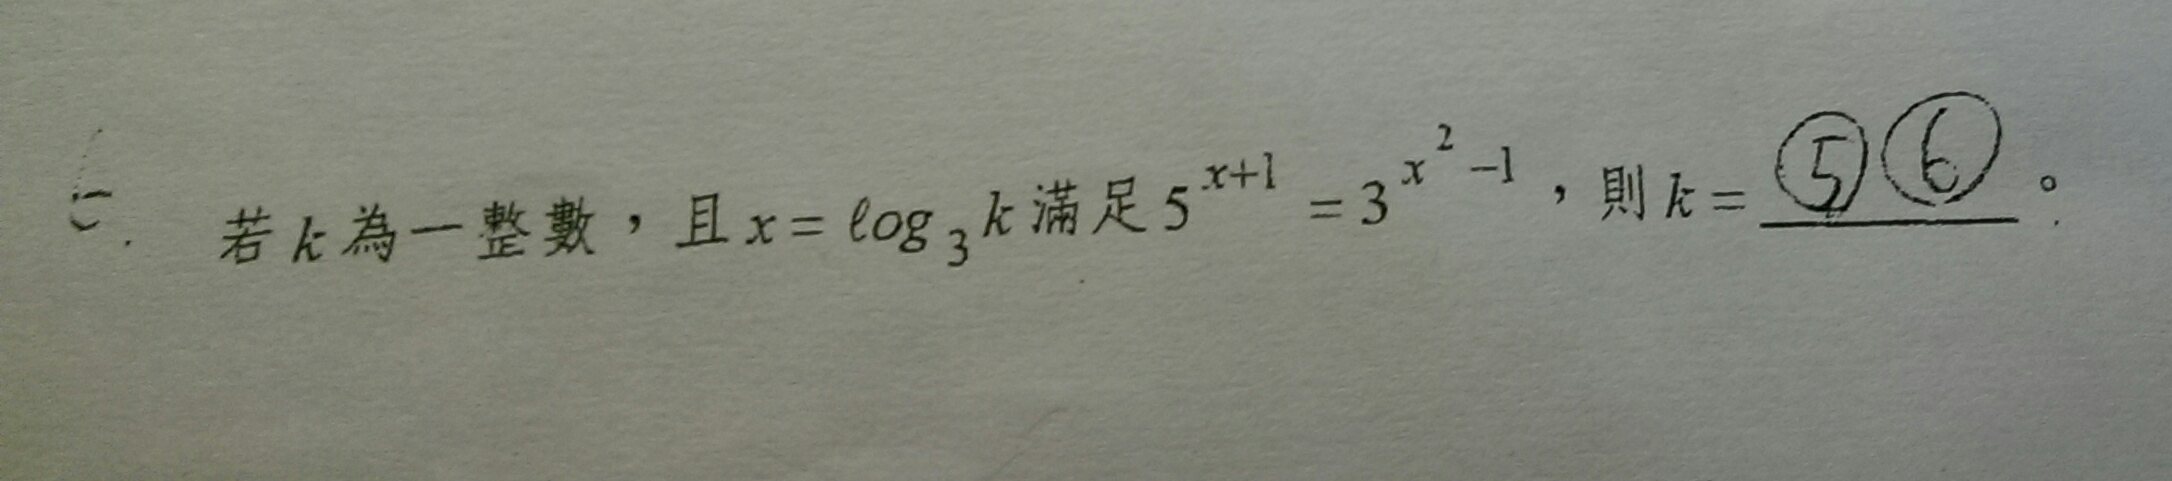 若 k 為一整數，且 x = log₃ k 滿足 5^{x+1} = 3^{x²-1}，則 k = ⑤⑥。